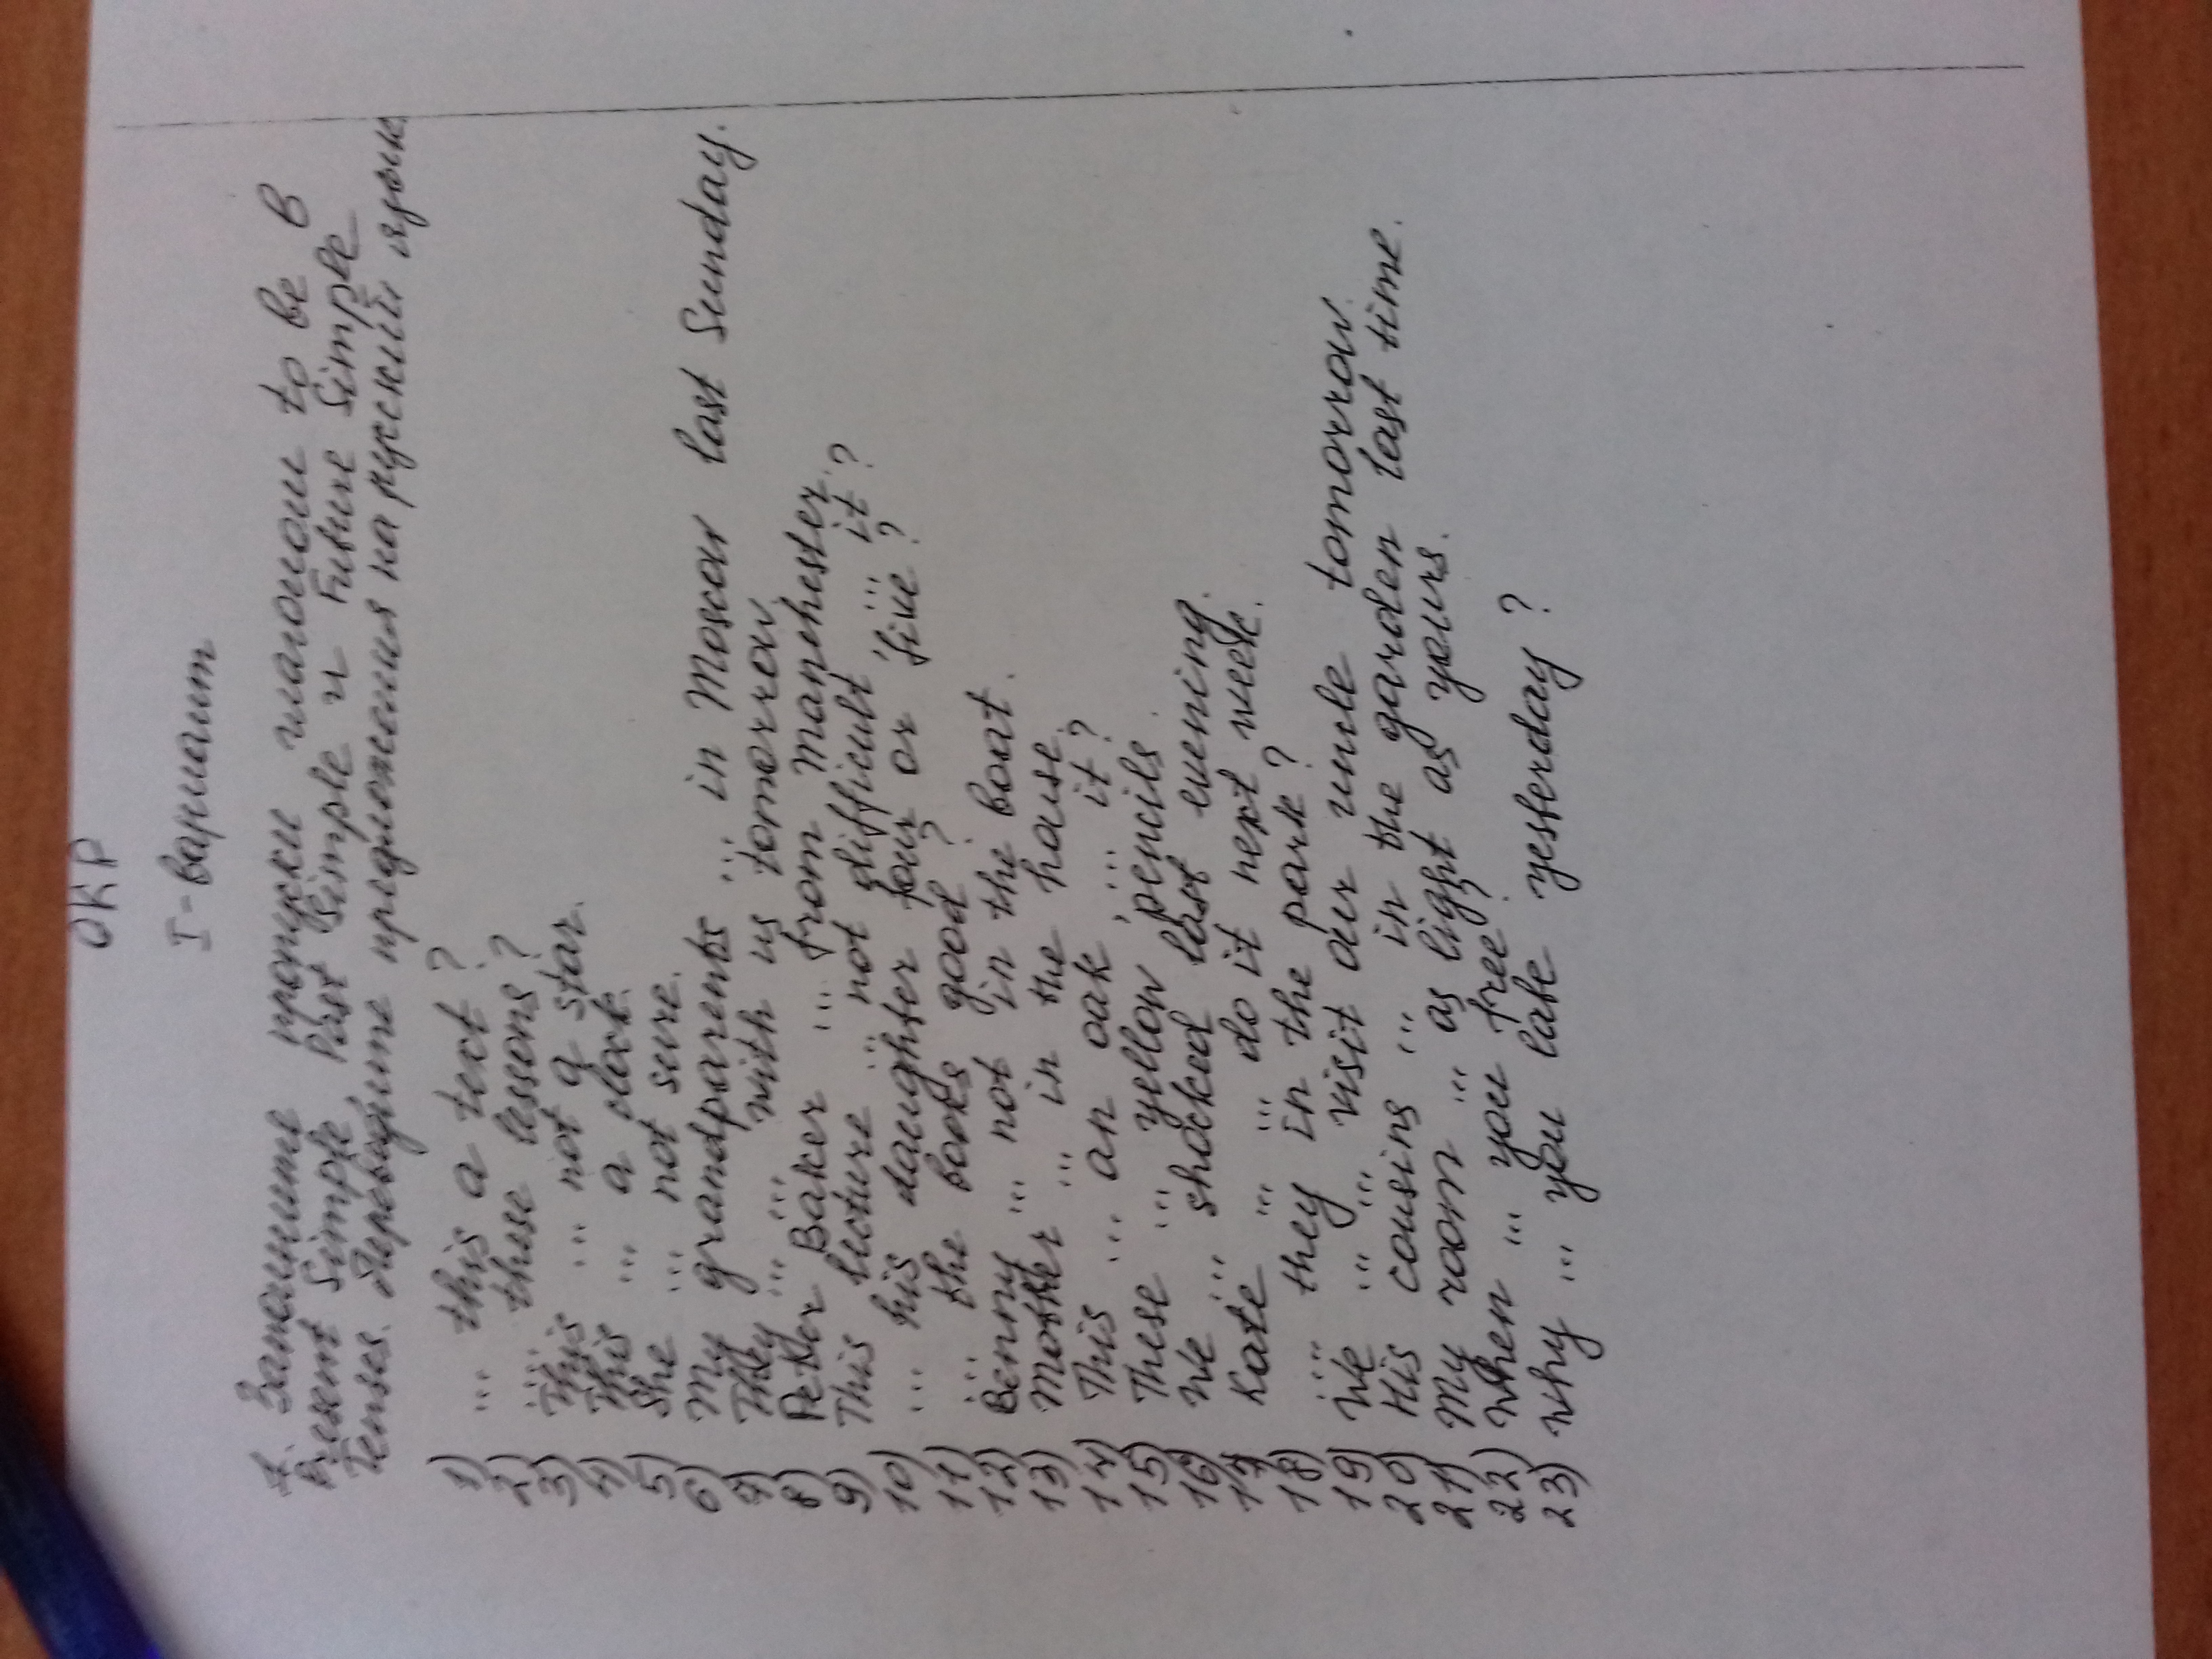 ОКР
I-вариант
1. Заполните пропуски глаголом to be в
Present Simple, Past Simple и Future Simple
Tenses. Переведите предложения на русский язык.
1) ... this a text?
2) ... these lessons?
3) This ... not a star.
4) This ... a clock.
5) She ... not sure.
6) My grandparents ... in Moscow last Sunday.
7) They ... ... with us tomorrow.
8) Peter Baker ... from Manchester.
9) This lecture ... not difficult, ... it?
10) ... his daughter four or five?
11) ... the books good?
12) Benny ... not in the boat.
13) Mother ... in the house.
14) This ... an oak, ... it?
15) These ... yellow pencils.
16) We ... shocked last evening.
17) Kate ... ... do it next week.
18) ... they in the park?
19) We ... ... visit our uncle tomorrow.
20) His cousins ... in the garden last time.
21) My room ... as light as yours.
22) When ... you free?
23) Why ... you late yesterday?